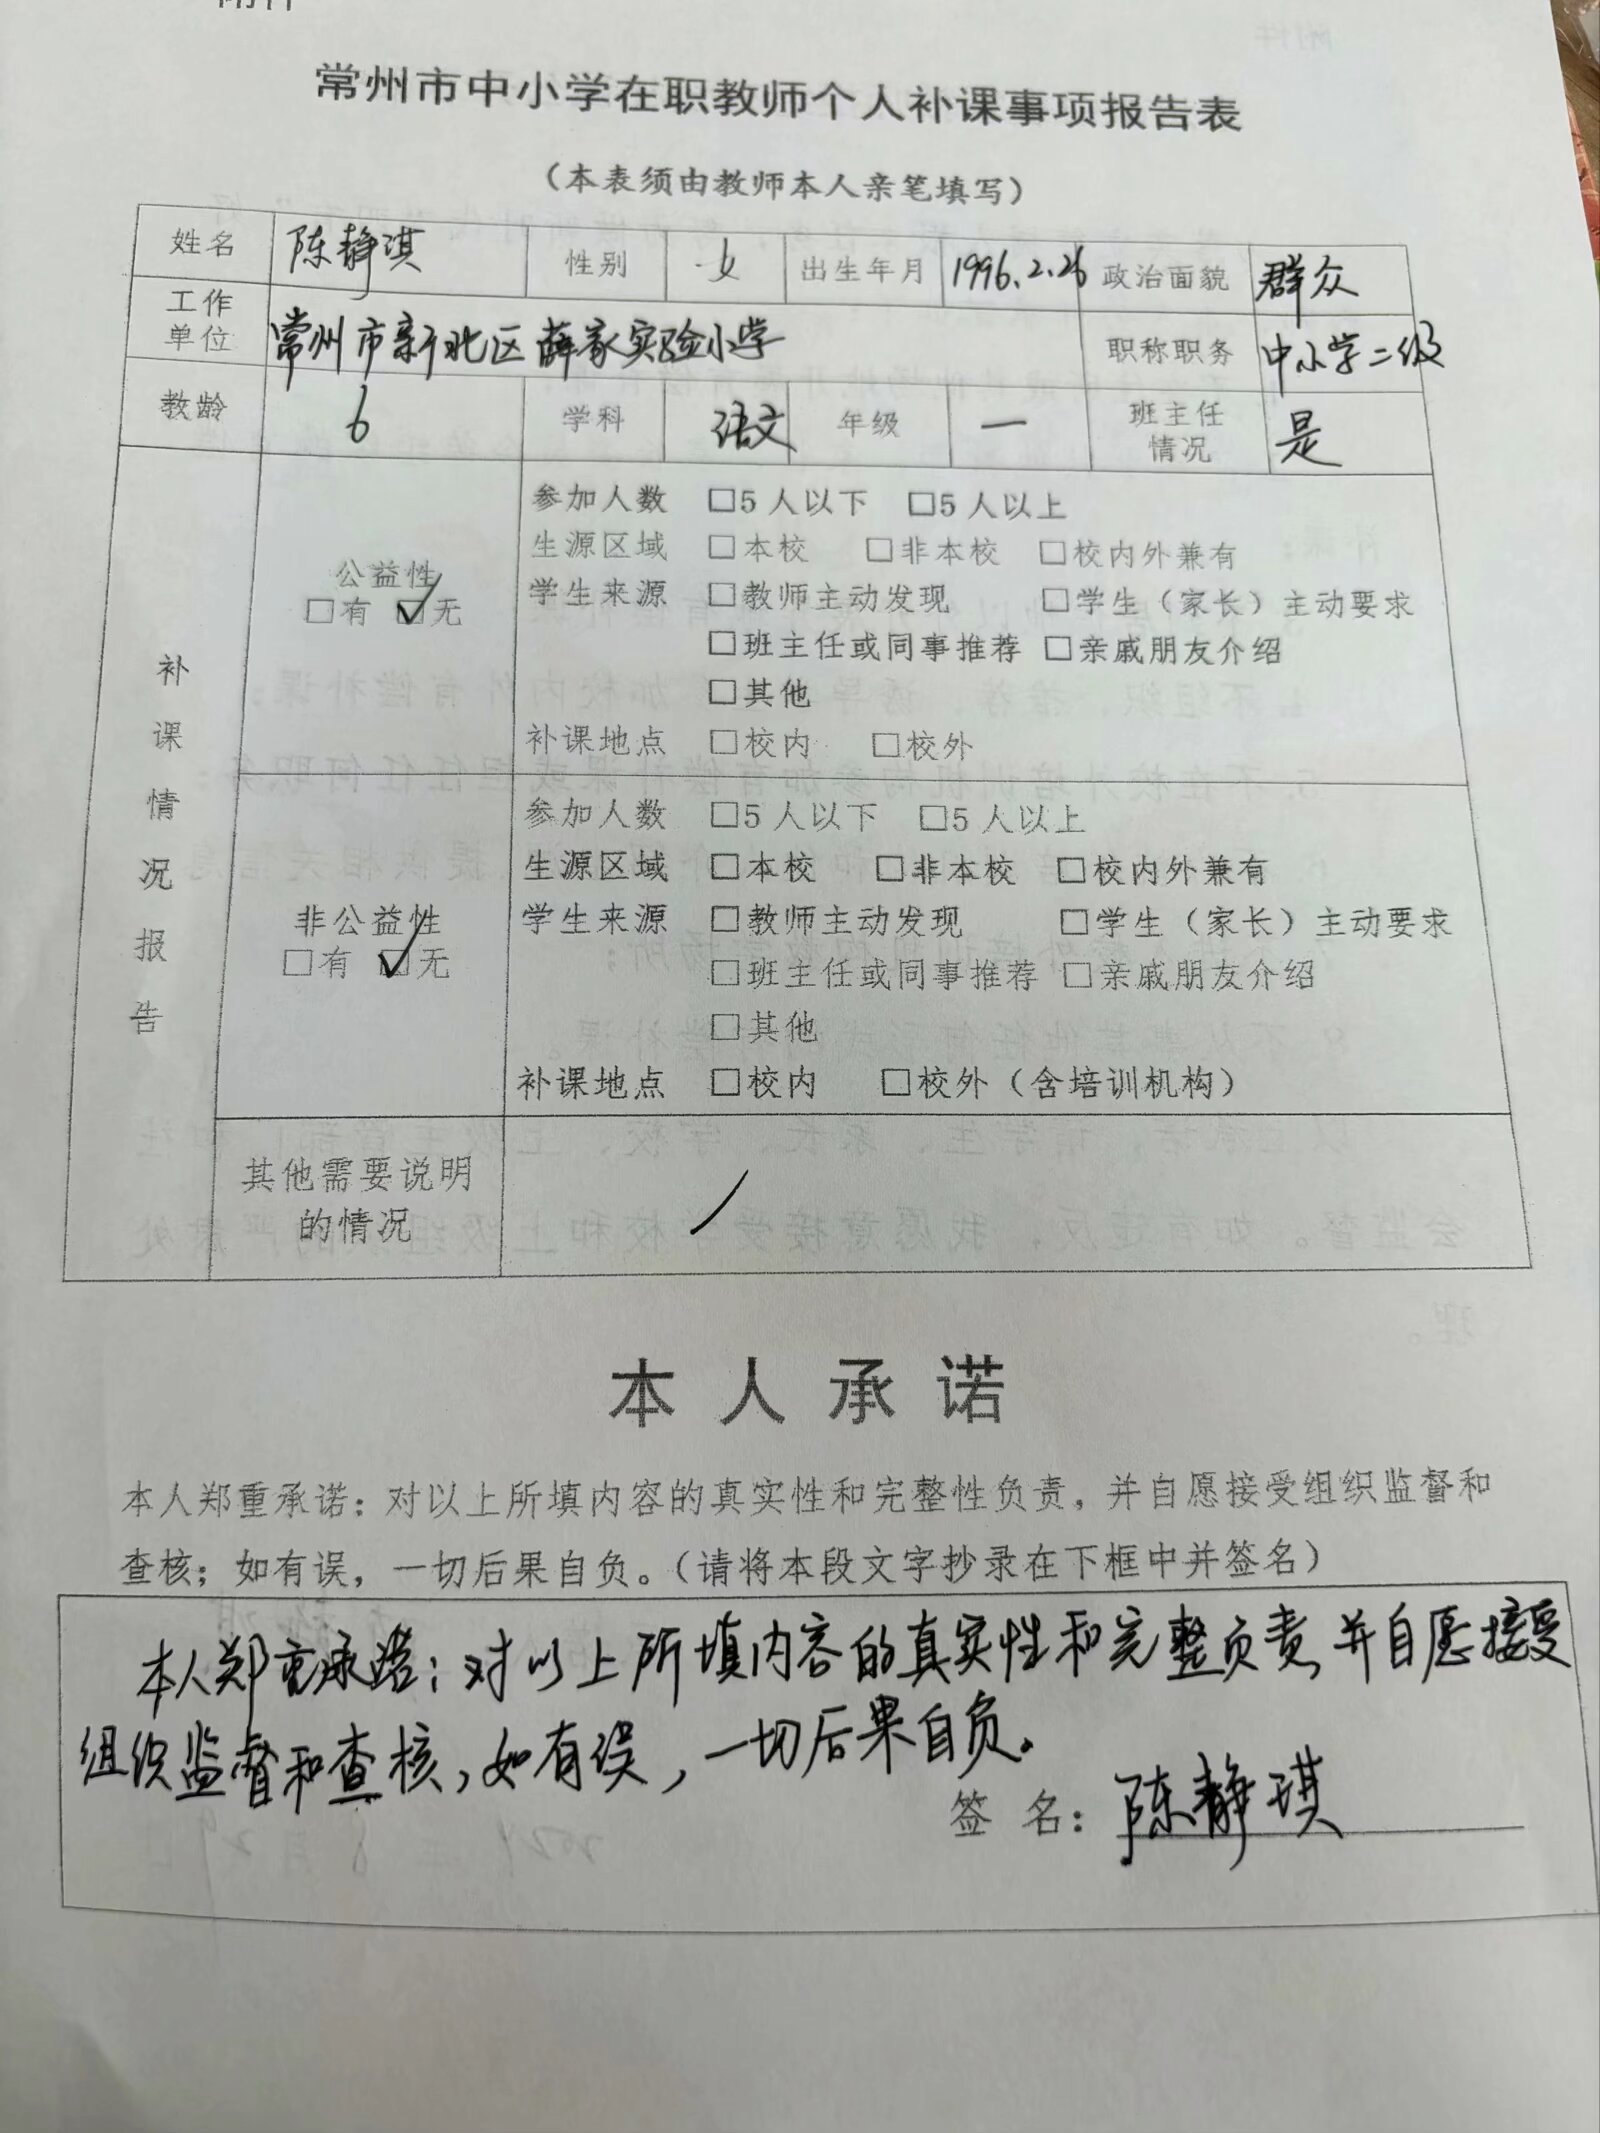 常州市中小学在职教师个人补课事项报告表
（本表须由教师本人亲笔填写）
姓名 陈静淇 性别 女 出生年月 1996.2.26 政治面貌 群众
工作单位 常州市新北区薛家实验小学 职称职务 中小学二级
教龄 6 学科 语文 年级 一 班主任情况 是
补课情况报告
公益性
□有 ☑无
参加人数 □5人以下 □5人以上
生源区域 □本校 □非本校 □校内外兼有
学生来源 □教师主动发现 □学生（家长）主动要求
□班主任或同事推荐 □亲戚朋友介绍
□其他
补课地点 □校内 □校外
非公益性
□有 ☑无
参加人数 □5人以下 □5人以上
生源区域 □本校 □非本校 □校内外兼有
学生来源 □教师主动发现 □学生（家长）主动要求
□班主任或同事推荐 □亲戚朋友介绍
□其他
补课地点 □校内 □校外（含培训机构）
其他需要说明
的情况
/
本人承诺
本人郑重承诺：对以上所填内容的真实性和完整性负责，并自愿接受组织监督和
查核；如有误，一切后果自负。（请将本段文字抄录在下框中并签名）
本人郑重承诺：对以上所填内容的真实性和完整负责，并自愿接受
组织监督和查核，如有误，一切后果自负。
签 名：陈静琪